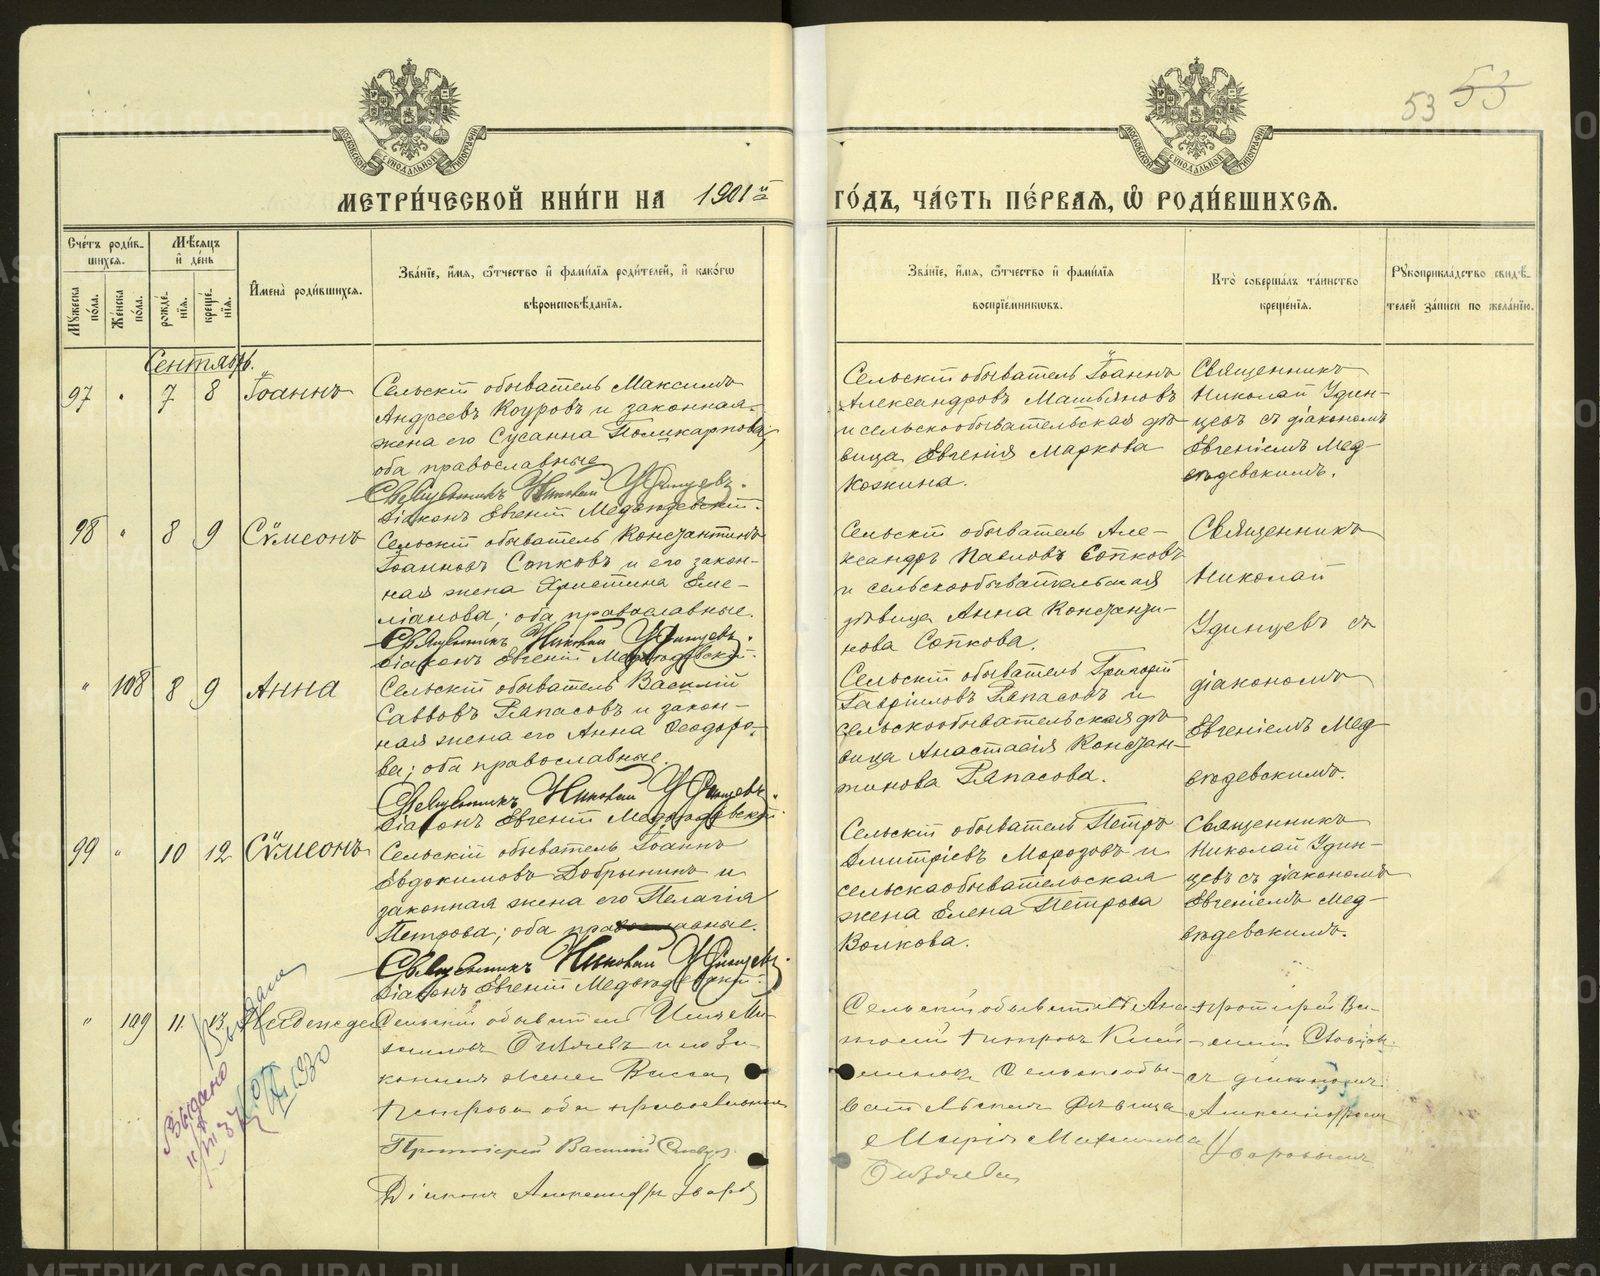 53 53
МОСКОВСКОЙ СѴНОДАЛЬНОЙ ТИПОГРАФІИ
МОСКОВСКОЙ СѴНОДАЛЬНОЙ ТИПОГРАФІИ
МЕТРИ́ЧЕСКОЙ КНИ́ГИ НА 1901й ГО́ДЪ, ЧА́СТЬ ПЕ́РВАЯ, Ѡ РОДИ́ВШИХСЯ.
Сче́тъ роди́вшихся.
Мѣ́сяцъ и де́нь
Мꙋжеска по́ла.
Же́нска по́ла.
рожде́нїя.
креще́нїя.
И́мена̀ роди́вшихся.
Зва́нїе, и́мя, ѻ́тчество и фами́лїя роди́телей, и како́гѡ
вѣроисповѣ́данїя.
Зва́нїе, и́мя, ѻ́тчество и фами́лїя
воспрїе́мникѡвъ.
Кто̀ соверша́лъ та́инство
креще́нїя.
Рꙋкоприкла́дство свидѣ́телей за́писи по жела́нїю.
Сентябрь.
97 " 7 8 Іоаннъ
Сельскій обыватель Максимъ
Андреевъ Коуровъ и законная
жена его Сусанна Поликарпова;
оба православные
Священникъ Николай Удинцевъ.
Діаконъ Евгеній Медвѣдевскій.
Сельскій обыватель Іоаннъ
Александровъ
и сельскообывательская дѣ-
вица Евгенія Маркова
Козкина.
Священникъ
Николай Удин-
цевъ съ діакономъ
Евгеніемъ Мед-
вѣдевскимъ.
98 " 8 9 Сѵмеонъ
Сельскій обыватель Константинъ
Іоанновъ Сопковъ и его закон-
ная жена Христина Еме-
ліанова; оба православные.
Священникъ Николай Удинцевъ.
Діаконъ Евгеній Медвѣдевскій.
Сельскій обыватель Але-
ксандръ Павловъ Сопковъ
и сельскообывательская
дѣвица Анна Константи-
нова Сопкова.
Священникъ
Николай
Удинцевъ съ
діакономъ
Евгеніемъ Мед-
вѣдевскимъ.
" 108 8 9 Анна
Сельскій обыватель Василій
Саввовъ Рапасовъ и закон-
ная жена его Анна Ѳеодоро-
ва; оба православные.
Священникъ Николай Удинцевъ.
Діаконъ Евгеній Медвѣдевскій.
Сельскій обыватель Григорій
Гавріиловъ Рапасовъ и
сельскообывательская дѣ-
вица Анастасія Констан-
тинова Рапасова.
99 " 10 12 Сѵмеонъ
Сельскій обыватель Іоаннъ
Евдокимовъ Добрынинъ и
законная жена его Пелагія
Петрова; оба православные.
Священникъ Николай Удинцевъ.
Діаконъ Евгеній Медвѣдевскій.
Сельскій обыватель Петръ
Дмитріевъ Морозовъ и
сельскаобывательская
жена Елена Петрова
Волкова.
Священникъ
Николай Удин-
цевъ съ діакономъ
Евгеніемъ Мед-
вѣдевскимъ.
" 109 11 13 Надежда
Сельскій обыватель Илія Ми-
хаиловъ и его за-
конная жена Васса
Петрова оба православные
Протоіерей Василій
Діаконъ Александръ Уваровъ
Сельскій обыватель
Петровъ
Сельскообы-
вательская дѣвица
Марія Михаилова
Протоіерей Ва-
силій
съ діакономъ
Александромъ
Уваровымъ
Выдано